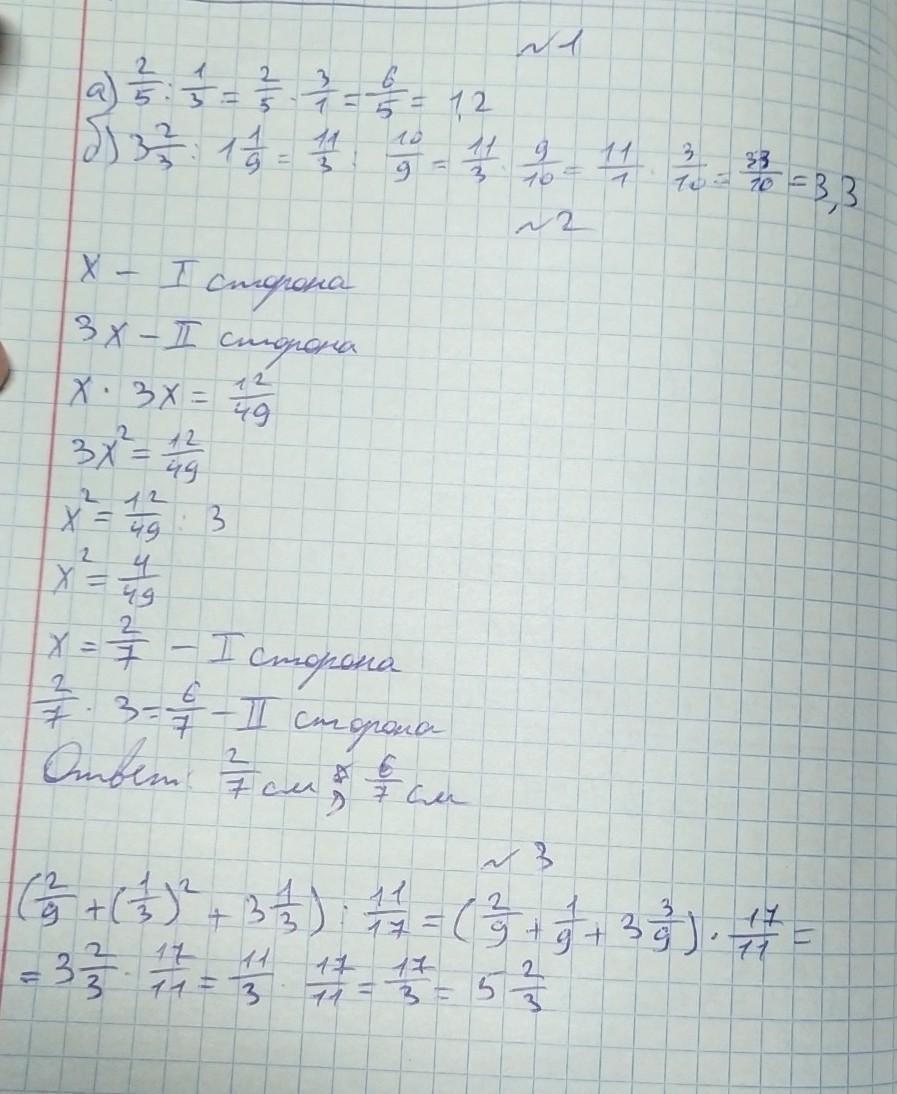 №1
а) 2/5 : 1/3 = 2/5 · 3/1 = 6/5 = 1,2
б) 3 2/3 : 1 1/9 = 11/3 : 10/9 = 11/3 · 9/10 = 11/1 · 3/10 = 33/10 = 3,3
№2
x – I сторона
3x – II сторона
x · 3x = 12/49
3x² = 12/49
x² = 12/49 : 3
x² = 4/49
x = 2/7 – I сторона
2/7 · 3 = 6/7 – II сторона
Ответ: 2/7 см 6/7 см
№3
(2/9 + (1/3)² + 3 1/3) : 11/17 = (2/9 + 1/9 + 3 3/9) · 17/11 =
= 3 2/3 · 17/11 = 11/3 · 17/11 = 17/3 = 5 2/3